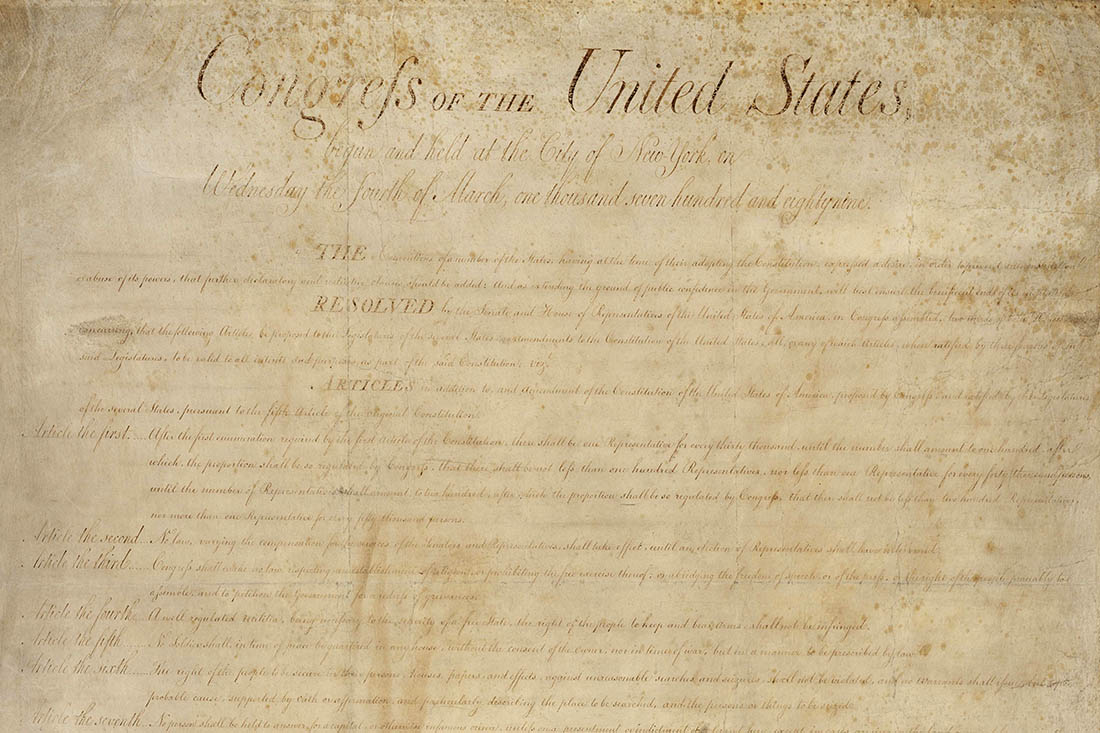 Congreſs OF THE United States,
begun and held at the City of New-York, on
Wednesday the fourth of March, one thousand seven hundred and eighty nine.
THE Conventions of a number of the States, having at the time of their adopting the Constitution, expreſsed a desire, in order to prevent misconstruction
or abuse of its powers, that further declaratory and restrictive clauses should be added: And as extending the ground of public confidence in the Government, will best ensure the beneficent ends of its
RESOLVED by the Senate and House of Representatives of the United States of America, in Congreſs aſsembled, two thirds of both Houses
concurring, that the following Articles be proposed to the Legislatures of the several States, as amendments to the Constitution of the United States, all, or any of which Articles, when ratified by three fourths of the
said Legislatures, to be valid to all intents and purposes, as part of the said Constitution; vizt
ARTICLES in addition to, and amendment of the Constitution of the United States of America, proposed by Congreſs, and ratified by the Legislatures
of the several States, pursuant to the fifth Article of the original Constitution.
Article the first..... After the first enumeration required by the first Article of the Constitution, there shall be one Representative for every thirty thousand, until the number shall amount to one hundred, after
which, the proportion shall be so regulated by Congreſs, that there shall be not leſs than one hundred Representatives, nor leſs than one Representative for every forty thousand persons,
until the number of Representatives shall amount to two hundred, after which the proportion shall be so regulated by Congreſs, that there shall not be leſs than two hundred Representatives,
nor more than one Representative for every fifty thousand persons.
Article the second... No law, varying the compensation for the services of the Senators and Representatives, shall take effect, until an election of Representatives shall have intervened.
Article the third...... Congreſs shall make no law respecting an establishment of religion, or prohibiting the free exercise thereof; or abridging the freedom of speech, or of the preſs; or the right of the people peaceably to
aſsemble, and to petition the Government for a redreſs of grievances.
Article the fourth... A well regulated Militia, being neceſsary to the security of a free State, the right of the people to keep and bear Arms, shall not be infringed.
Article the fifth....... No Soldier shall, in time of peace be quartered in any house, without the consent of the owner, nor in time of war, but in a manner to be prescribed by law.
Article the sixth...... The right of the people to be secure in their persons, houses, papers, and effects, against unreasonable searches and seizures, shall not be violated, and no warrants shall iſsue, but upon
probable cause, supported by oath or affirmation, and particularly describing the place to be searched, and the persons or things to be seized.
Article the seventh.. No person shall be held to answer for a capital, or otherwise infamous crime, unleſs on a presentment or indictment of a Grand Jury, except in cases